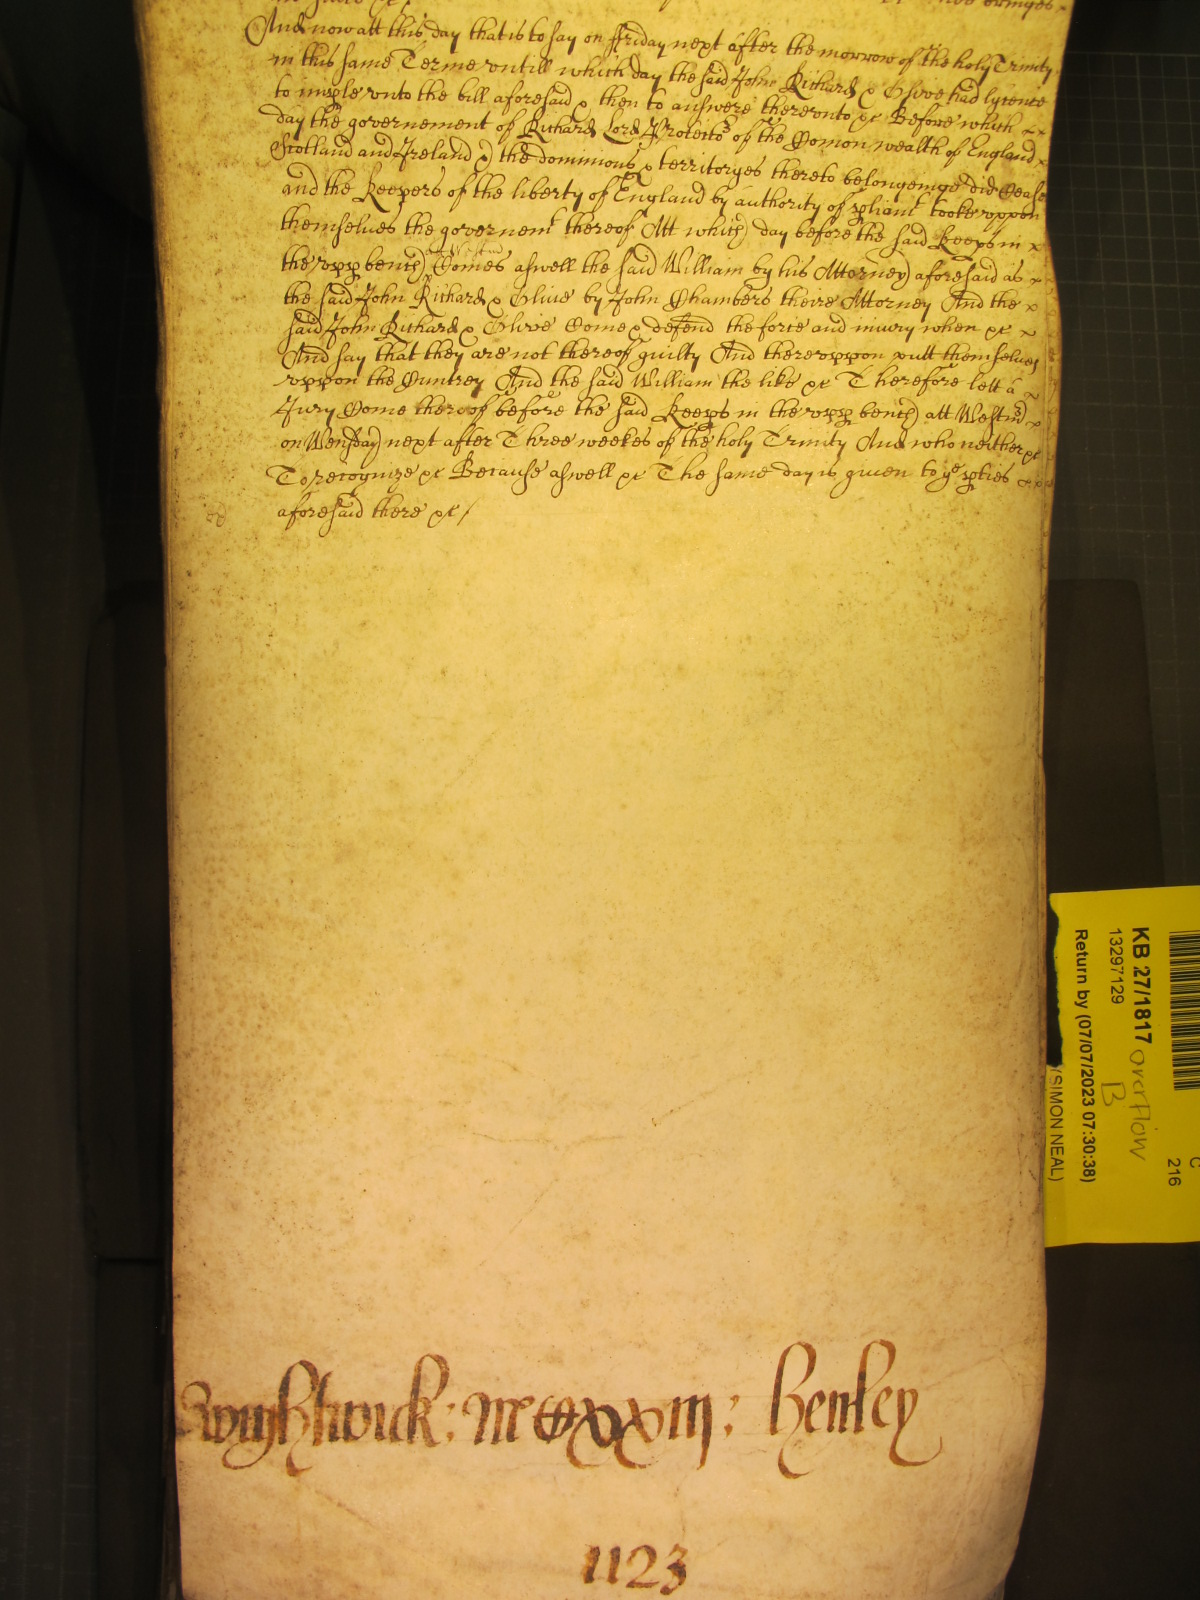 And now att this day that is to say on ffriday next after the morrow of the holy Trinity
in this same Terme untill which day the said John Richard & Olive had lycence
to imple unto the bill aforesaid & then to answere thereunto &c Before which
day the governement of Richard Lord Protector of the Comon wealth of England
Scotland and Ireland & the dominions & territoryes thereto belongeinge did Cease
and the Keepers of the liberty of England by authority of pliamt tooke uppon
themselves the governemt thereof Att which day before the said Keeps in
the upp bench att Westmr Comes aswell the said William by his Attorney aforesaid as
the said John Richard & Olive by John Chambers theire Attorney And the
said John Richard & Olive Come & defend the force and iniury when &c
And say that they are not thereof guilty And thereuppon putt themselves
uppon the Cuntrey And the said William the like &c Therefore lett a
Jury Come thereof before the said Keeps in the upp bench att Westmr
on Wensday next after Three weekes of the holy Trinity And who neither &c
To recognize &c Because aswell &c The same day is given to ye pties
aforesaid there &c /
Wightwick : MCXXIII : Henley
1123
KB 27/1817 overflow
B
13297129
Return by (07/07/2023 07:30:38)
(SIMON NEAL)
C
216